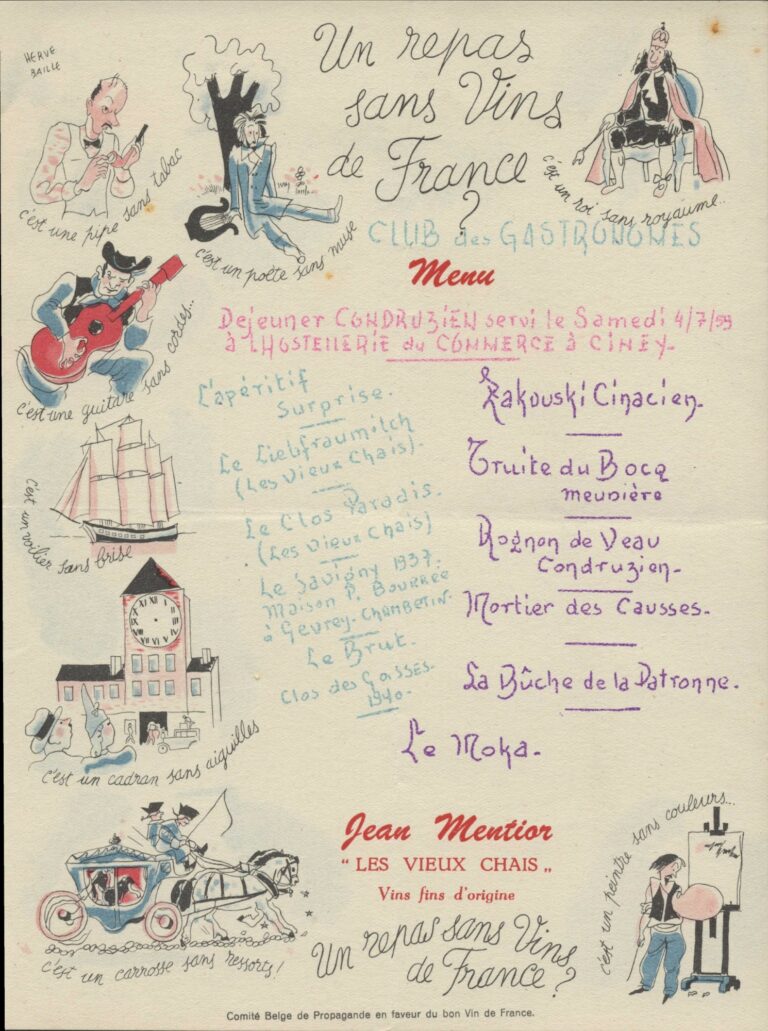 HERVE
BAILLE
Un repas
sans Vins
de France
?
c'est une pipe sans tabac
c'est un poète sans muse
c'est un roi sans royaume..
CLUB des GASTRONOMES
Menu
Dejeuner CONDRUZIEN servi le Samedi 4/7/59
à l'HOSTELLERIE du COMMERCE à CINEY.
c'est une guitare sans cordes...
L'apéritif
Surprise.
Le Liebfraumilch
(Les Vieux Chais).
Le Clos Paradis.
(Les Vieux Chais)
Le Savigny 1937.
Maison P. Bourrée
à Gevrey-Chambertin.
Le Brut.
Clos des Gasses.
1940.
Zakouski Cinacien.
Truite du Bocq
meunière
Rognon de Veau
Condruzien.
Mortier des Causses.
La Bûche de la Patronne.
Le Moka.
c'est un voilier sans brise
c'est un cadran sans aiguilles
c'est un carrosse sans ressorts!
Jean Mentior
"LES VIEUX CHAIS„
Vins fins d'origine
Un repas sans Vins
de France?
c'est un peintre sans couleurs...
Comité Belge de Propagande en faveur du bon Vin de France.